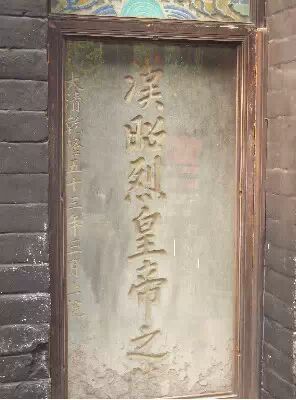 漢昭烈皇帝之陵
大清乾隆五十三年三月上浣